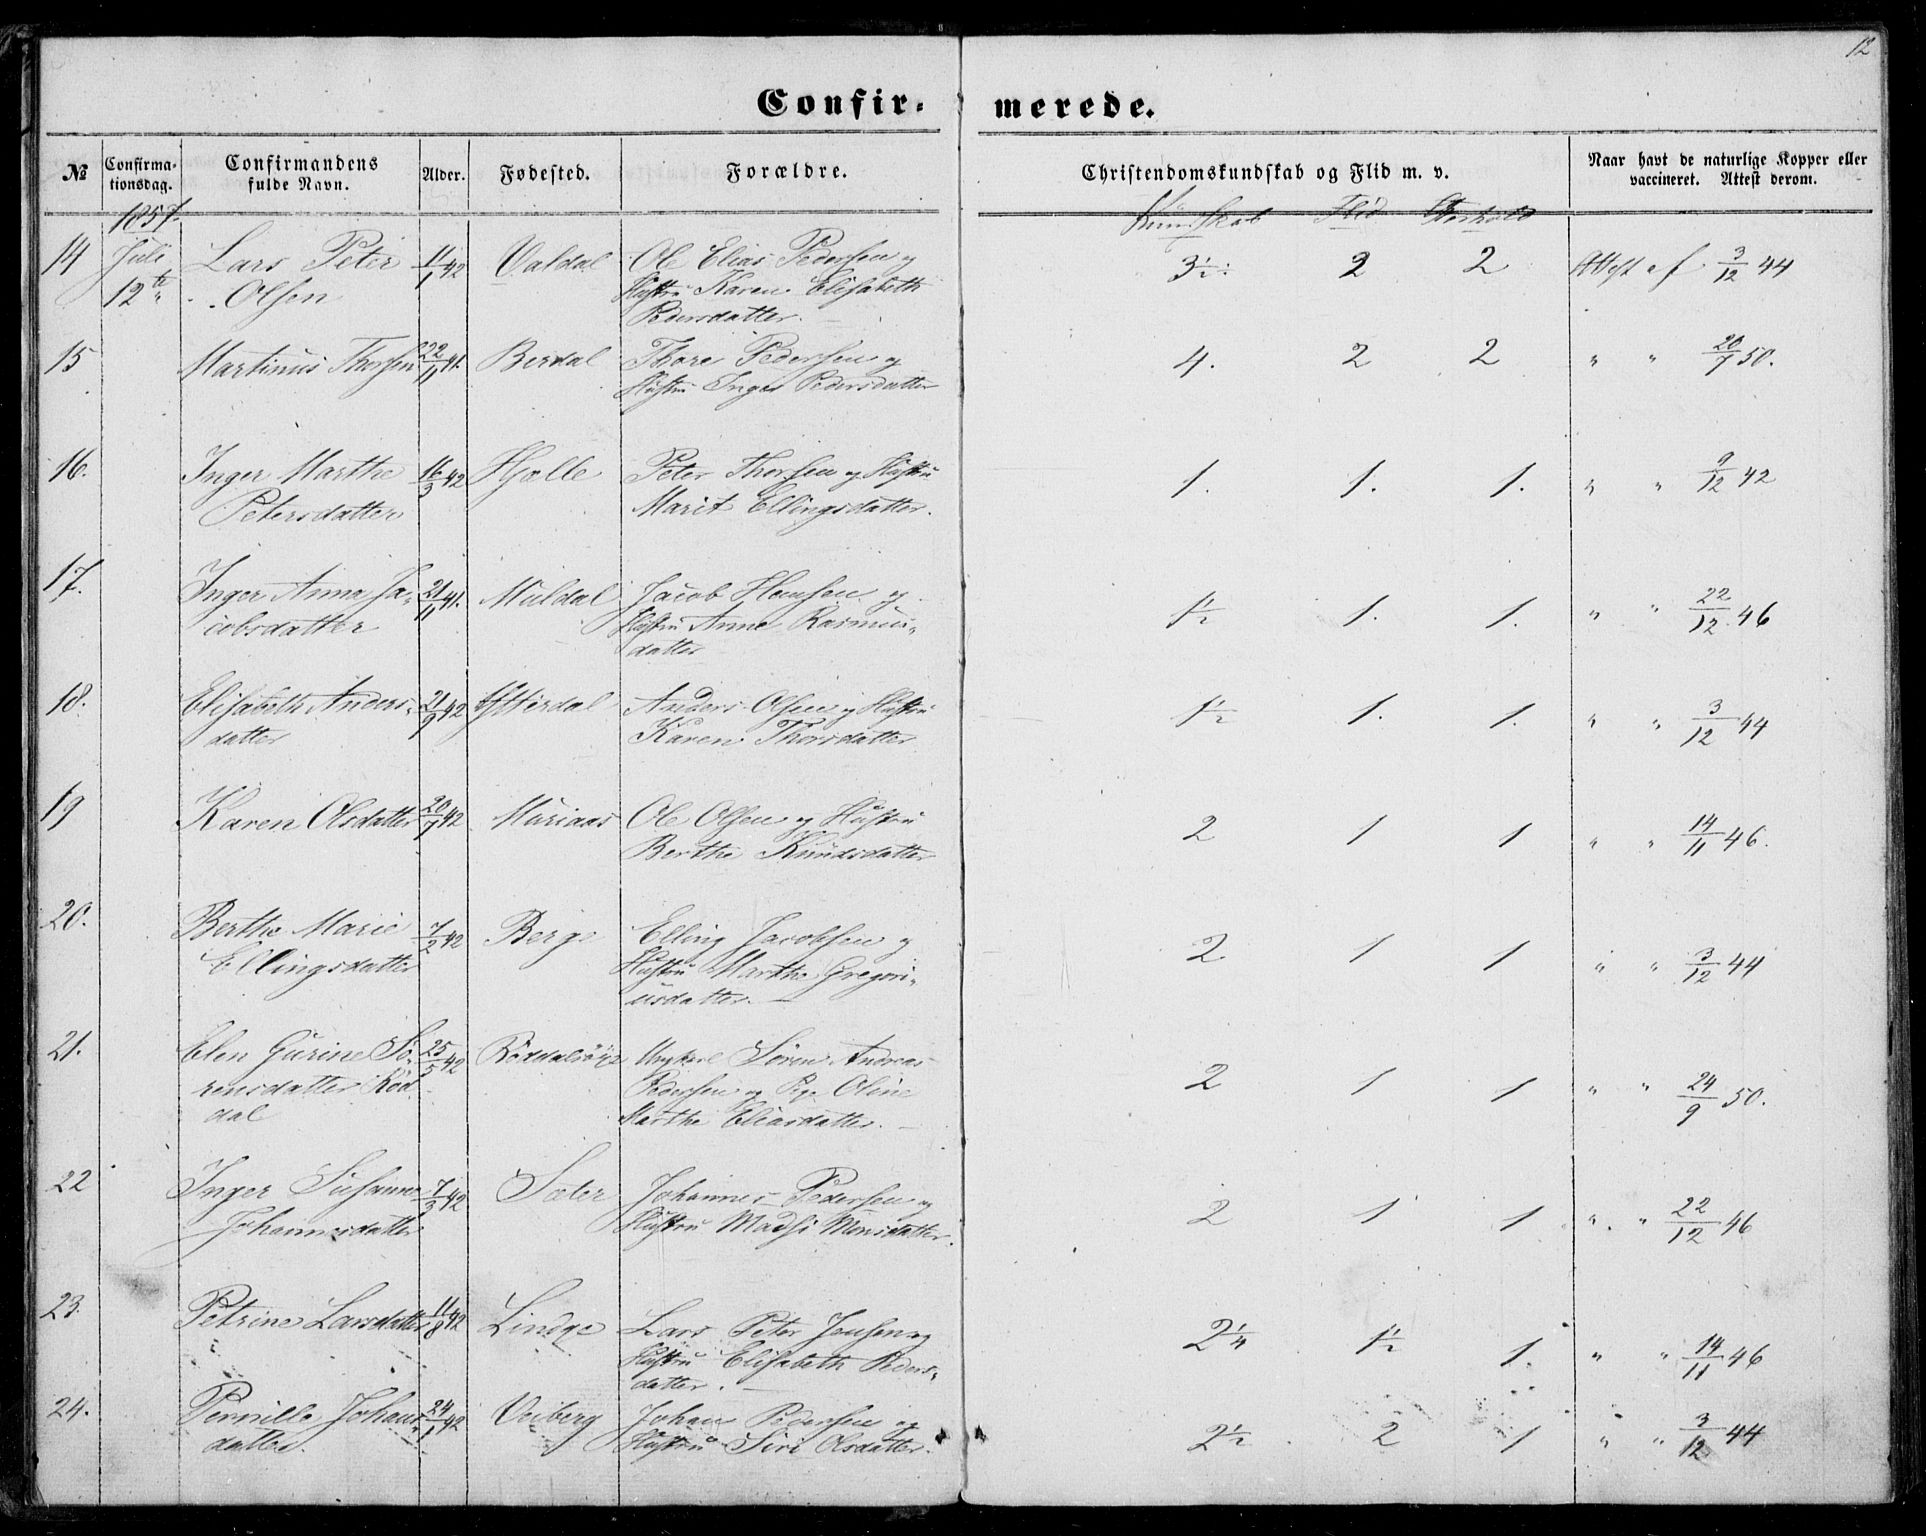 12
Confir- merede.
№ Confirma-tionsdag. Confirmandens fulde Navn. Alder. Fødested. Forældre. Christendomskundskab og Flid m. v. Naar havt de naturlige Kopper eller vaccineret. Attest derom.
1857. Kundskab Flid Forhold
14 Juli Lars Peter 11/1 42 Valdal Ole Elias Pedersen og 3½ 2 2 Attest af 3/12 44
12te Olsen Hustru Karen Elisabeth
Pedersdatter.
15 Martinus Thorsen 22/11 41. Berdal Thore Pedersen og 4. 2 2 " " 20/7 50.
Hustru Inger Pedersdatter
16. Inger Marthe 16/3 42 Hjelle Peter Thorsen og Hustru 1. 1. 1. " " 9/12 42
Petersdatter Marit Ellingsdatter.
17. Inger Anna Ja- 21/11 41. Muldal Jacob Hansen og 1½ 1. 1. " " 22/12 46
cobsdatter Hustru Anne Rasmus-
datter
18. Elisabeth Anders- 21/9 42 Anders Olsen og Hustru 1½ 1. 1. " " 3/12 44
datter Karen Thorsdatter
19 Karen Olsdatter 20/7 42 Muriaas Ole Olsen og Hustru 2 1 1 " " 14/11 46.
Berthe Knudsdatter
20. Berthe Marie 7/2 42 Berge Elling Jacobsen og 2 1 1 " " 3/12 44
Ellingsdatter Hustru Marthe Gregori-
usdatter.
21. Elen Gurine Sö- 25/5 42 Röddalsöie Ungkarl Sören Andreas 2 1 1 " " 24/9 50.
rensdatter Röd- Pedersen og Pige Oline
dal Marthe Eliasdatter.
22 Inger Susanne 7/3 42 Sæter Johannes Pedersen og 2 1 1 " " 22/12 46
Johannesdatter Hustru Madsi Monsdatter.
23. Petrine Larsdatter 11/8 42 Lindge Lars Peter Jensen og 2¼ 1½ 1. " " 14/11 46
Hustru Elisabeth Peders-
datter.
24. Pernille Johans- 24/1 42 Veiberg Johan Pedersen og 2½ 2 1 " " 3/12 44
datter. Hustru Siri Olsdatter.